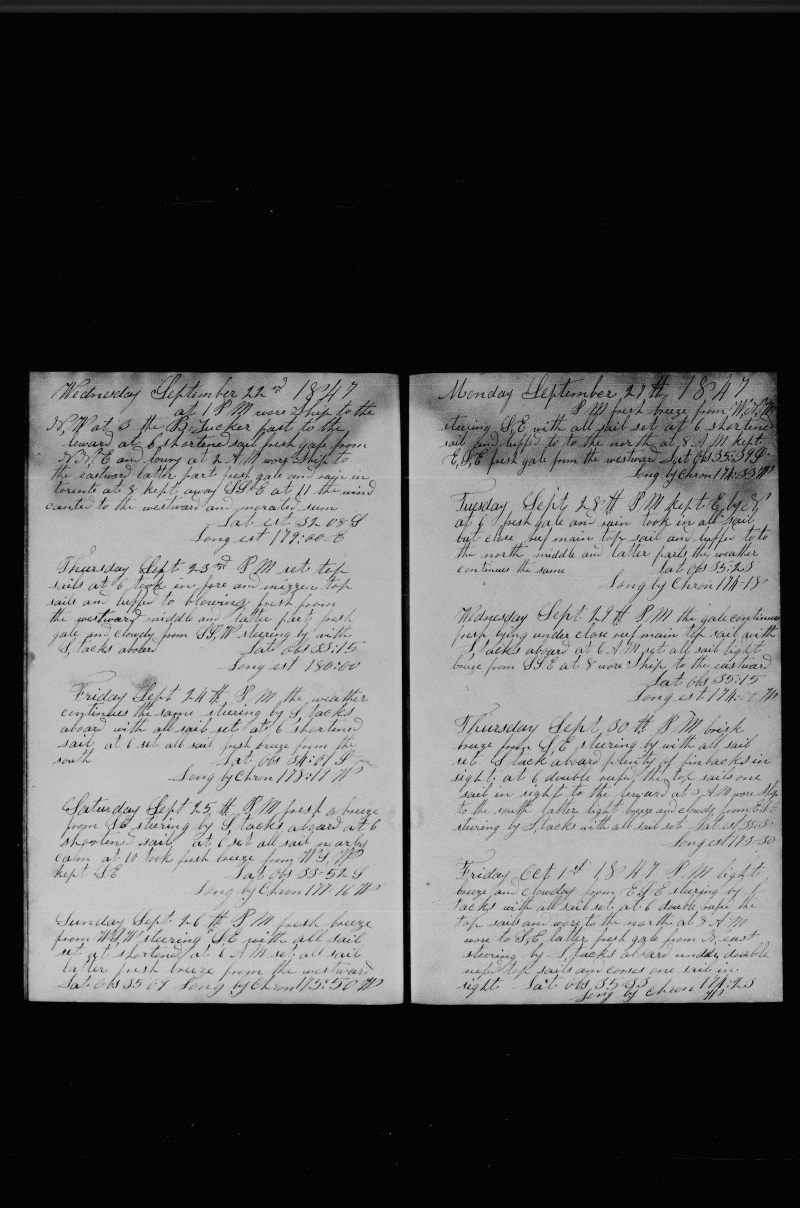 Wednesday September 22nd 1847
at 1 P M wore ship to the
N, W at 3 the B, Tucker past to the
leward at 6 shortened sail fresh gale from
N B, E and rowy at 2 A M wore ship to
the eastward latter part fresh gale and rain in
torents at 8 kept away S S E at 11 the wind
canted to the westward and morated sum
Lat est 32-08 S
Long est 179:00 E
Thursday Sept 23rd P M set top
sails at 6 took in fore and mizzen top
sails an luffed to blowing fresh from
the westward middle and latter part fresh
gale and clowdy from S S, W steering by with
S, tacks aboard Lat obs 33:15
Long est 180:00
Friday Sept 24th P M the weather
continues the same steering by S tacks
aboard with all sail set at 6 shortened
sail at 6 set all sail fresh breeze from the
south Lat obs 34:01 S
Long by Chron 178:11 W
Saturday Sept 25th P M fresh a breeze
from S E stering by S, tacks aboard at 6
shortened sail at 6 set all sail nearby
calm at 10 took fresh breeze from W S, W
kept S E Lat obs 33-52 S
Long by Chron 177-16 W
Sunday Sept 26th P M fresh breeze
from W S, W steering S, E with all sail
set at shortened at 6 A M set all sail
latter fresh breeze from the westward
Lat obs 35 07 Long by Chron 175:50 W
Monday September 27th 1847
P M fresh breeze from
steering S, E with all sail set at 6 shortened
sail and luffed to to the north at 8 A M kept
E, S, E fresh gale from the westward Lat obs 35:39 S
Long by Chron 174:33 W
Tuesday Sept 28th P M kept E by S
at 6 fresh gale an rain took in all sail
but close reef main top sail an luffed to to
the north middle and later parts the weather
continues the same Lat obs 35:23
Long by Chron 174-18
Wednesday Sept 29th P M the gale continues
fresh lying under close reef main top sail with
S, tacks aboard at 6 A M set all sail light
breeze from S S E at 8 wore ship to the eastward
Lat obs 35:15
Long est 174: W
Thursday Sept 30th P M brisk
breeze from S, E steering by with all sail
set S tack aboard plenty of finbacks in
sight at 6 double reefed the top sails one
sail in sight to the leward at 3 A M wore ship
to the south latter light breeze and clowdy from E S E
steering by S, tacks with all sail set Lat est
Long est 173-30
Friday Oct 1st 1847 P M light
breeze an clowdy from E S E steering by S
tacks with all sail set at 6 double reef the
top sails an wore to the north at 8 A M
wore to S, E, latter fresh gale from N. east
steering by S, tacks aboard under double
reefed top sails an corses one sail in
sight Lat obs 35 33
Long by Chron 174:23
W